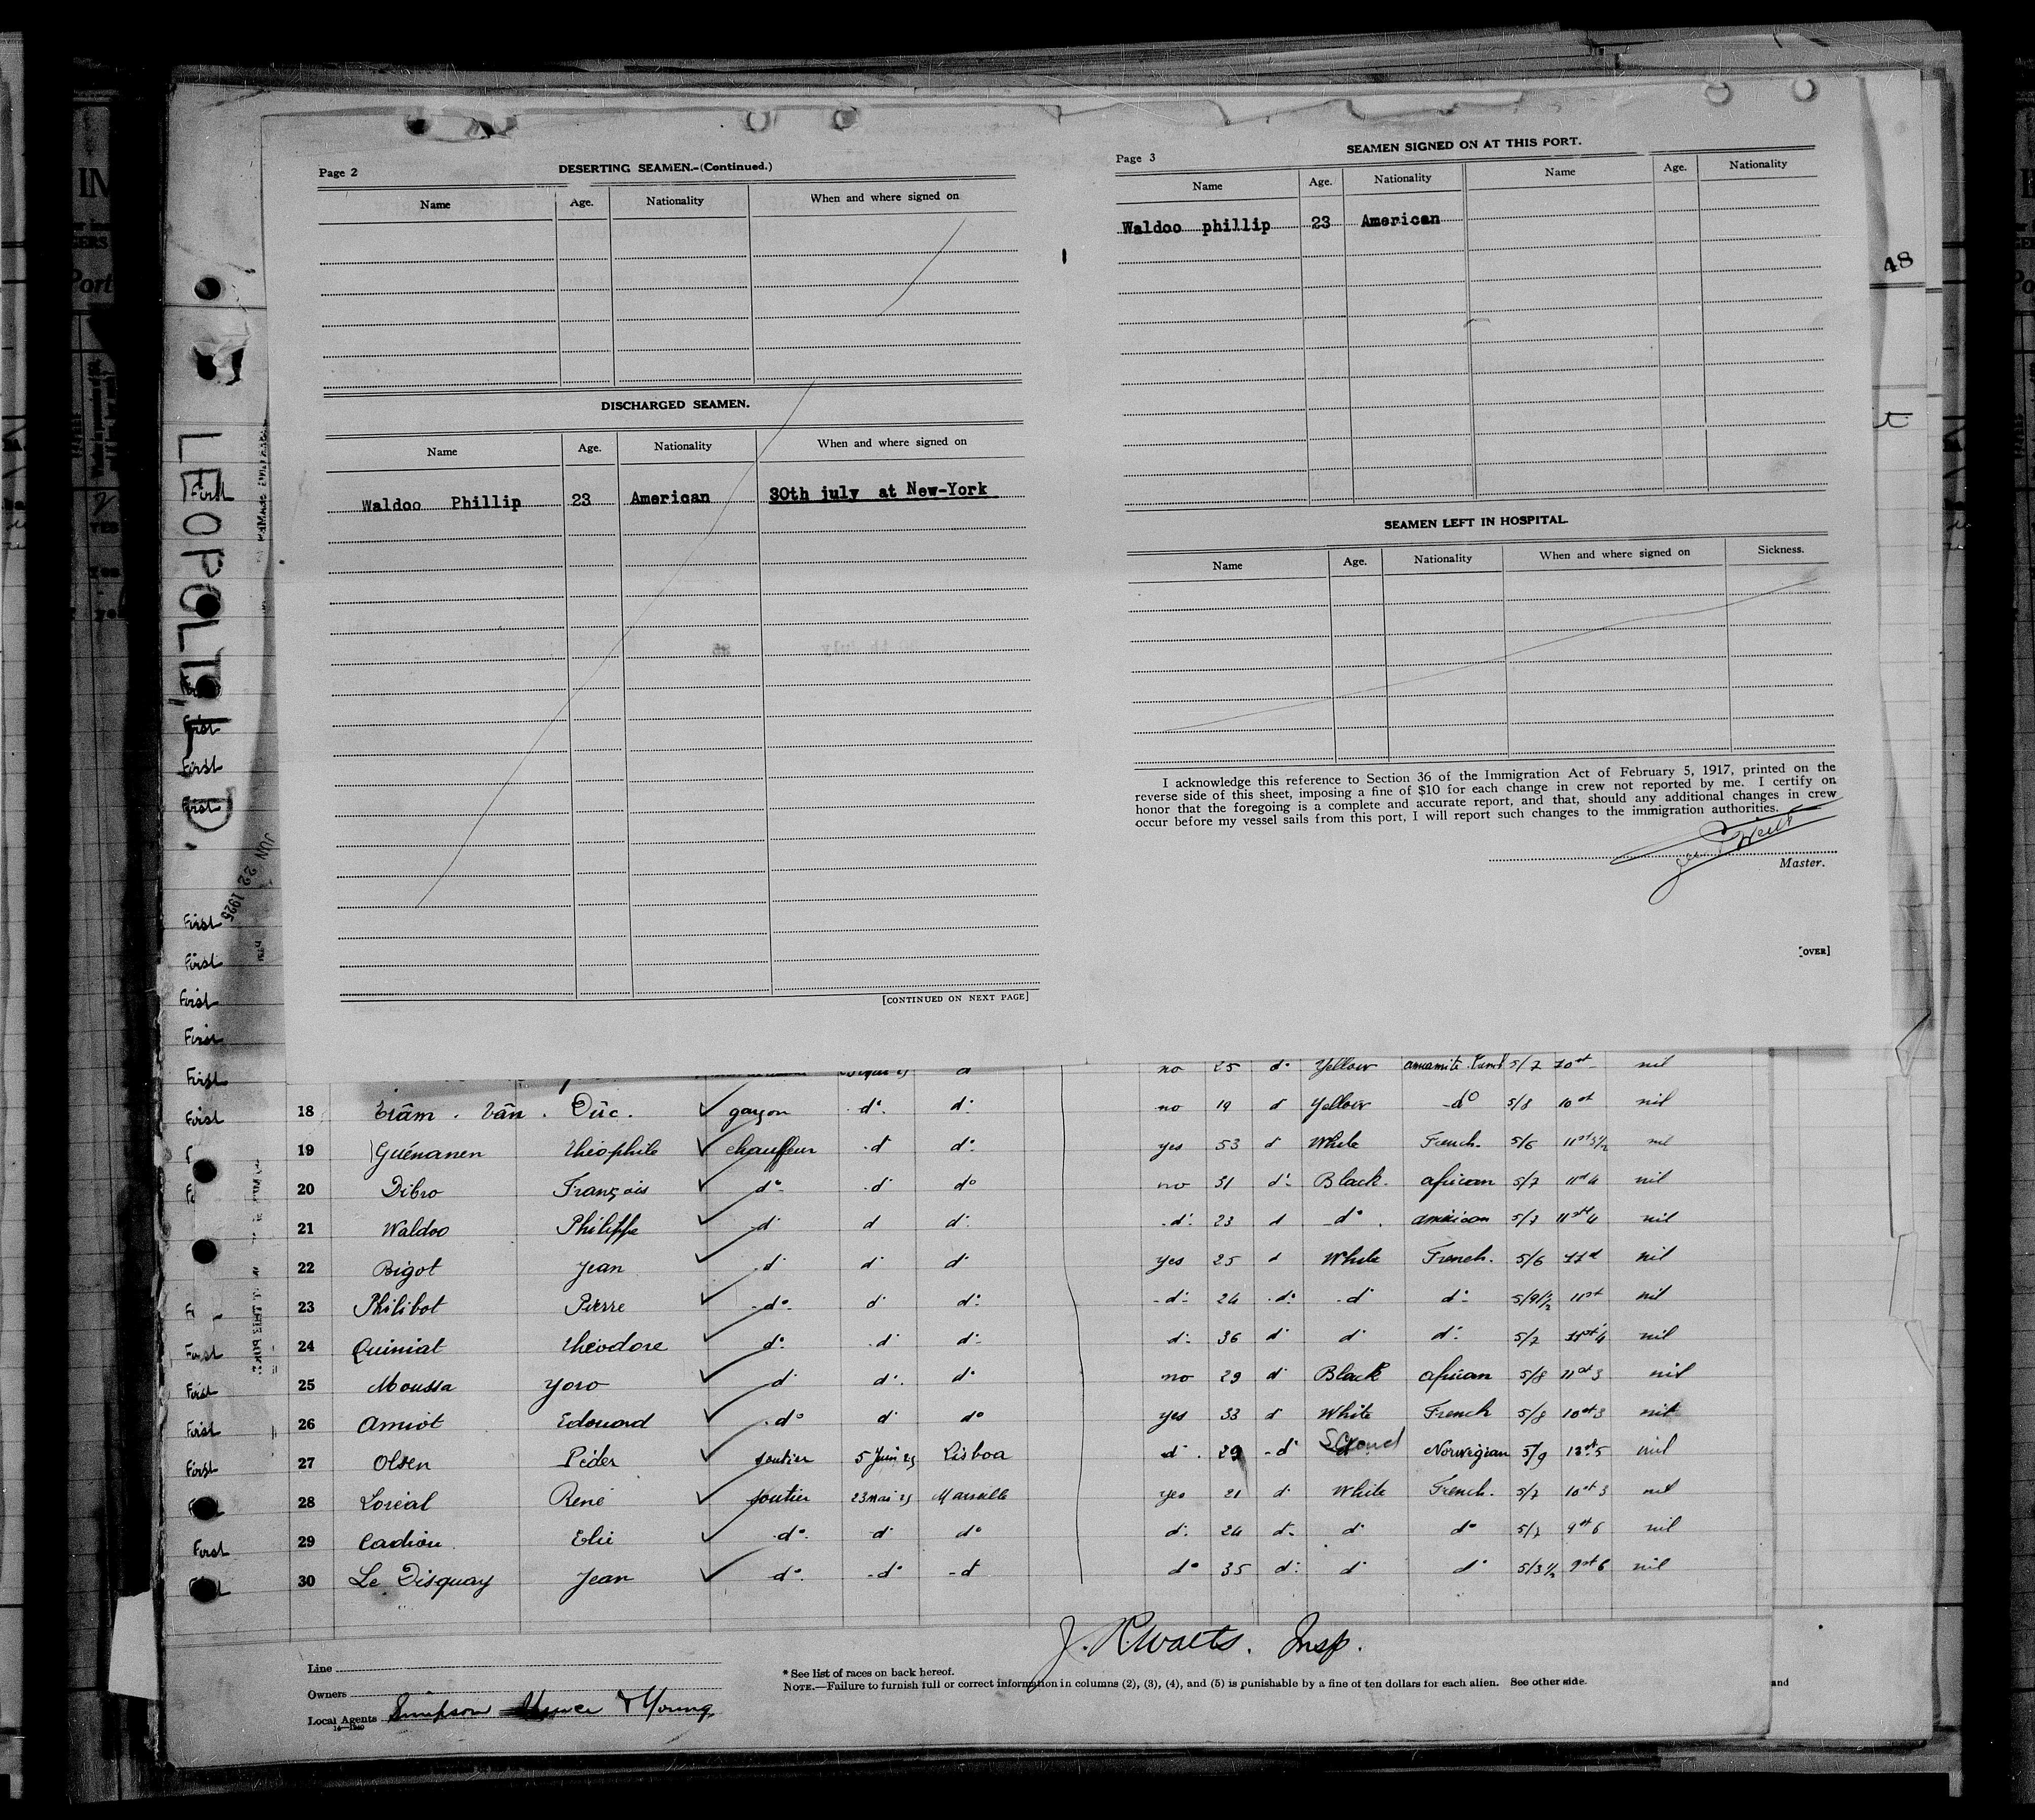 Page 2
DESERTING SEAMEN.-(Continued.)
Name Age. Nationality When and where signed on
DISCHARGED SEAMEN.
Name Age. Nationality When and where signed on
Waldoo Phillip 23 American 30th july at New-York
[CONTINUED ON NEXT PAGE]
Page 3
SEAMEN SIGNED ON AT THIS PORT.
Name Age. Nationality Name Age. Nationality
Waldoo phillip 23 American
SEAMEN LEFT IN HOSPITAL.
Name Age. Nationality When and where signed on Sickness.
I acknowledge this reference to Section 36 of the Immigration Act of February 5, 1917, printed on the
reverse side of this sheet, imposing a fine of $10 for each change in crew not reported by me. I certify on
honor that the foregoing is a complete and accurate report, and that, should any additional changes in crew
occur before my vessel sails from this port, I will report such changes to the immigration authorities.
Master.
[OVER]
48
LEOPOLT
JUN 22 1925
First
First
First
First
First
First
First
First
First
no 25 do Yellow 5/7 10st nil
First 18 Trâm . Vân . Dûc. garçon do. do no 19 d Yellow do 5/8 10st nil
19 Guénanen Théophile chauffeur d do yes 53 d White French. 5/6 11st 3½ nil
20 Dibro François do d do no 31 do Black. african 5/7 11st 4 nil
21 Waldoo Philippe d d do do 23 d do american 5/7 11st 4 nil
22 Bigot Jean d d d yes 25 d White French. 5/6 11st nil
23 Philibot Pierre do d do do 24 do d do 5/9½ 11st nil
First 24 Quiniat Théodore do d do do 36 d d do 5/7 11st 4 nil
First 25 Moussa Yoro d do do no 29 d Black african 5/8 11st 3 nil
First 26 Amiot Edouard do d do yes 33 d White French 5/8 10st 3 nil
First 27 Olsen Péder soutier 5 Juin 25 Lisboa d 29 d Scand Norwegian 5/9 12st 5 nil
28 Loréal René soutier 23 mai 25 Marseille yes 21 d White French. 5/7 10st 3 nil
First 29 Cadiou Elie do d do do 24 do d do 5/7 9st 6 nil
30 Le Disquay Jean do do d do 35 do d d 5/3½ 9st 6 nil
J. R. Watts. Insp.
Line
Owners
Local Agents Simpson Spence & Young
* See list of races on back hereof.
NOTE.—Failure to furnish full or correct information in columns (2), (3), (4), and (5) is punishable by a fine of ten dollars for each alien. See other side.
and